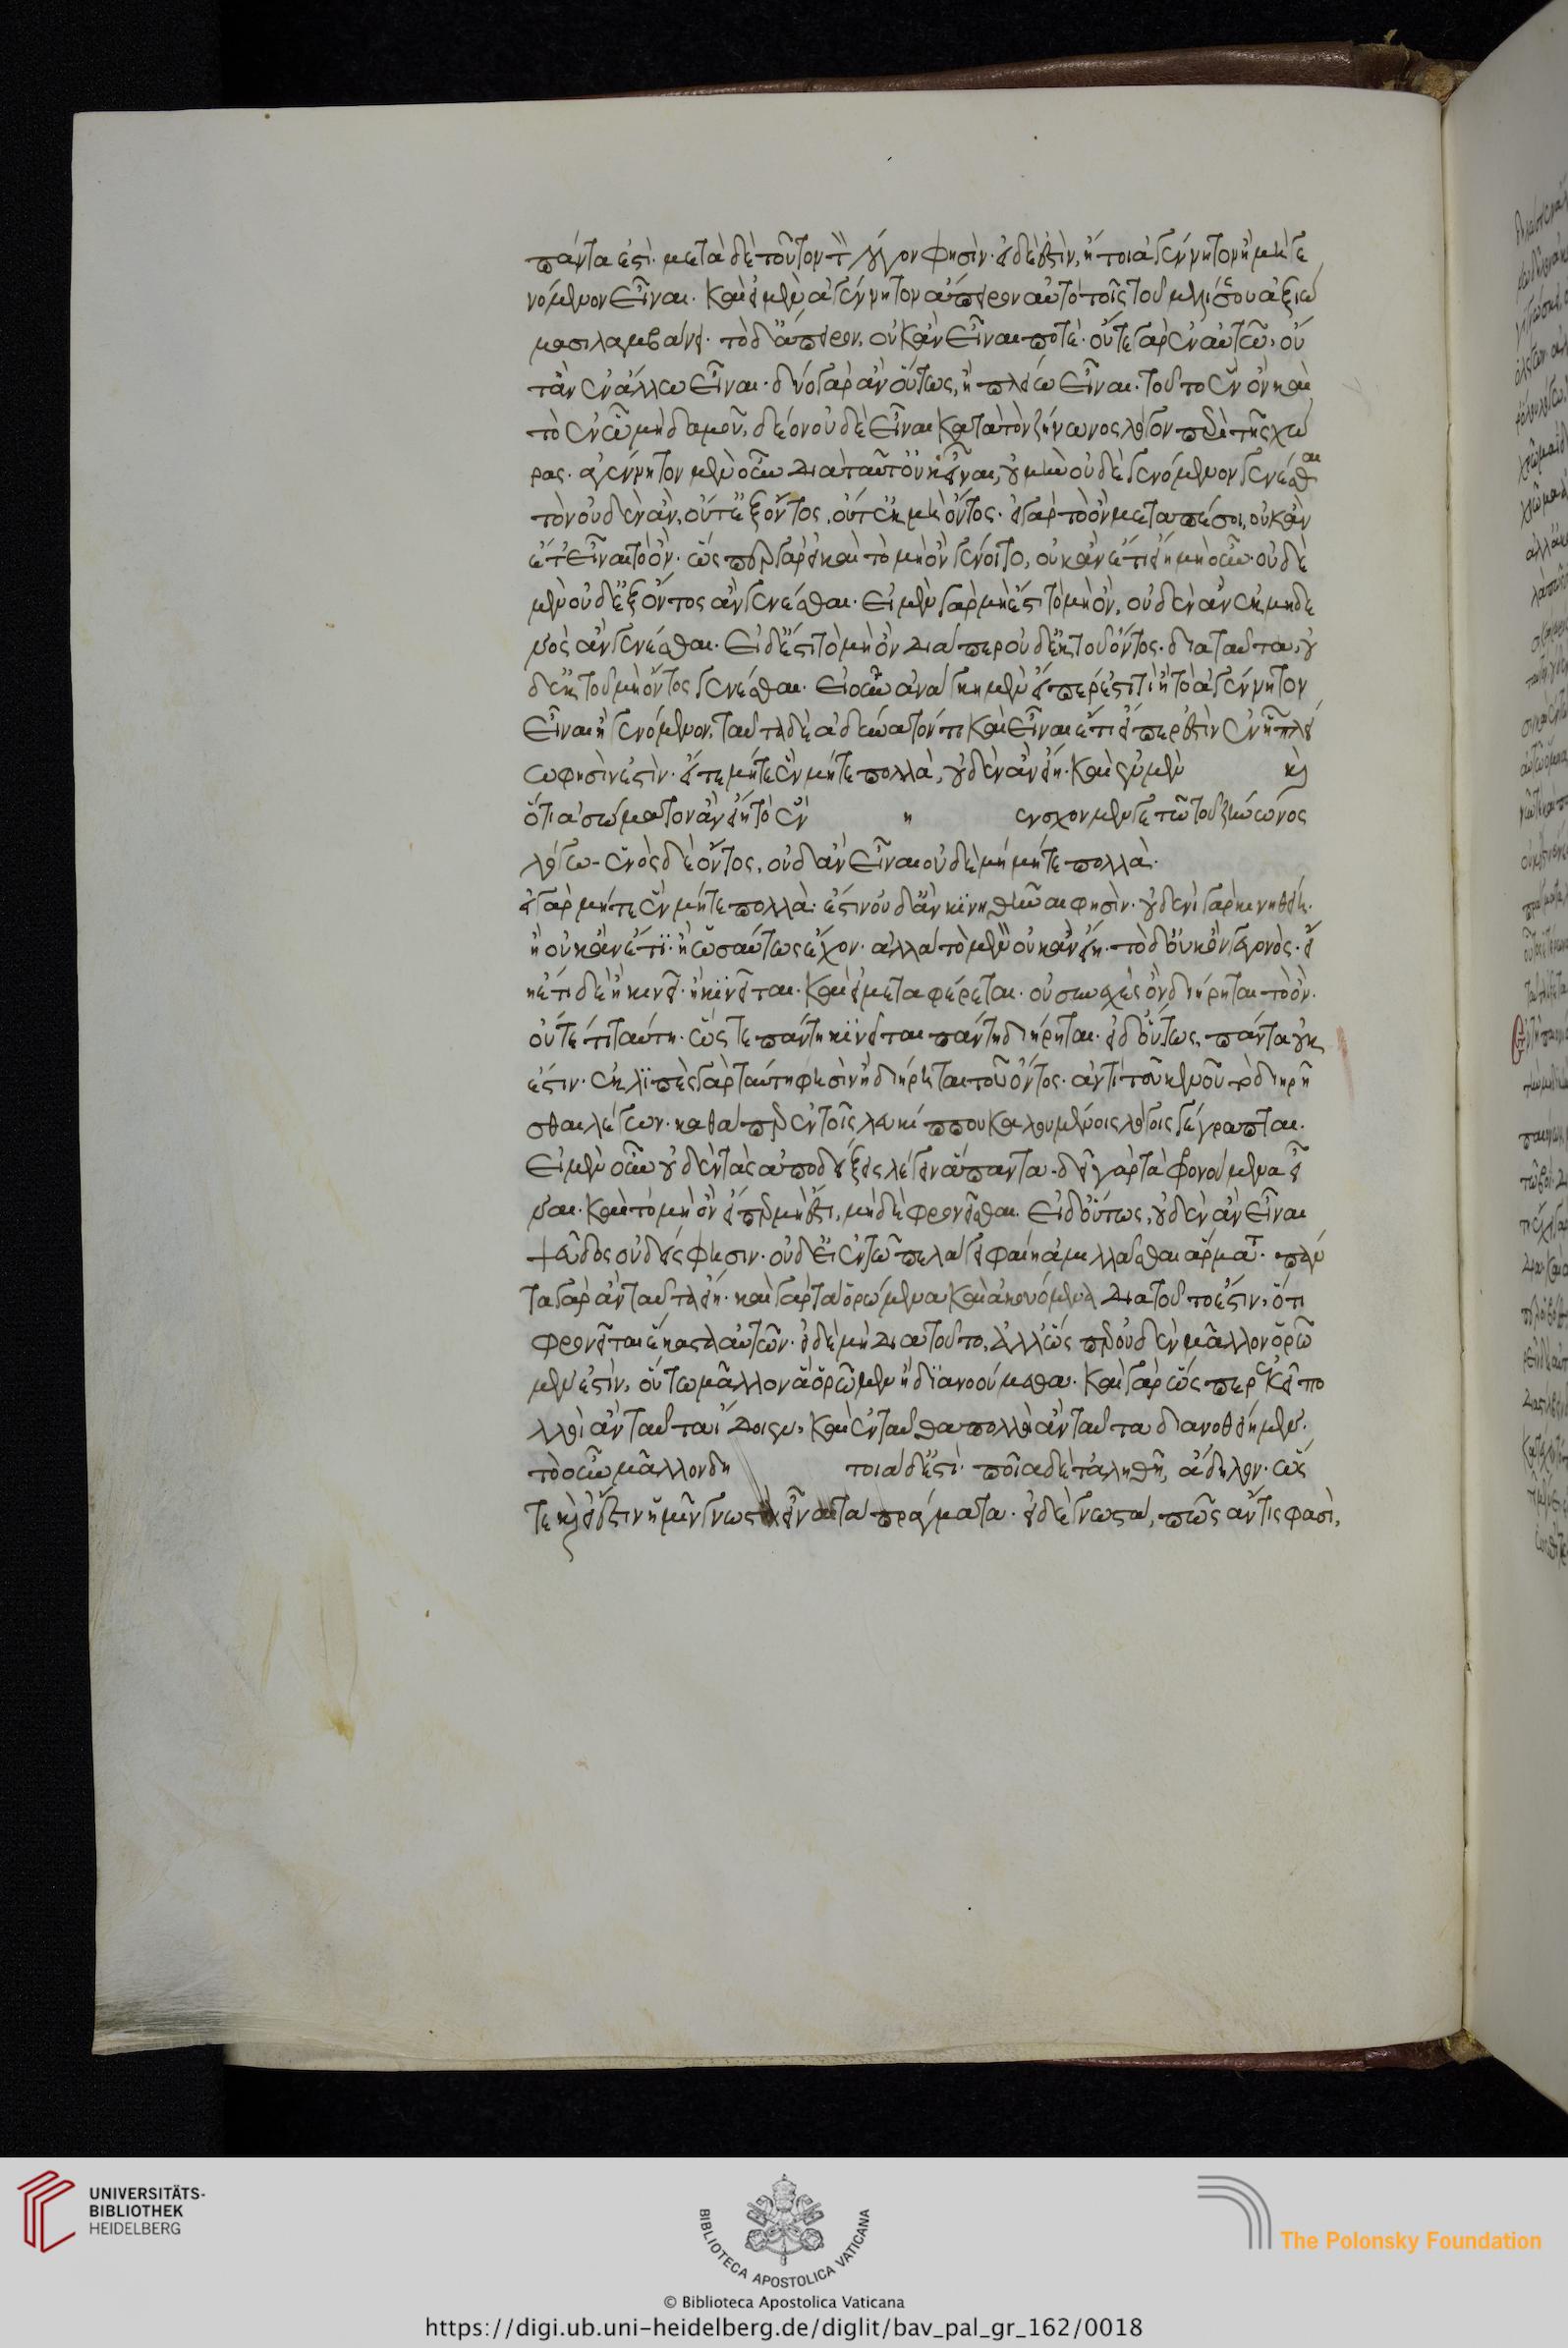 πάντα ἐστί. μετὰ δὲ τοῦτον τὸν λόγον φησίν. εἰ δὲ ἔστιν, ἤτοι ἀγέννητον ἢ μὴ γε
νόμενον εἶναι. καὶ εἰ μὲν ἀγέννητον ἄπειρον αὐτὸ τοῖς τοῦ μελίσσου ἀξιώ
μασι λαμβάνει. τὸ δ' ἄπειρον, οὐκ ἂν εἶναι ποτέ. οὔτε γὰρ ἐν αὐτῶ, οὔ
τ' ἂν ἐν ἄλλω εἶναι. δύο γὰρ ἂν οὕτως, ἢ πλείω εἶναι. τοῦτο ἓν ὂν καὶ
τὸ ἐν ὧ μηδαμοῦ, δε ὂν οὐδὲ εἶναι κατὰ τὸν ζήνωνος λόγον περὶ τῆς χώ
ρας. ἀγέννητον μὲν οὖν διὰ ταῦτ' οὐκ εἶναι, οὐ μὴν οὐδὲ γενόμενον γενέσθαι
τὸν οὐδὲν ἂν, οὔτ' ἐξ ὄντος, οὔτ' ἐκ μὴ ὄντος. εἰ γὰρ τὸ ὂν μεταπέσοι, οὐκ ἂν
ἔτ' εἶναι τὸ ὄν. ὥσπερ γὰρ εἰ καὶ τὸ μὴ ὂν γένοιτο, οὐκ ἂν ἔτι εἴη μὴ ὄν. οὐδὲ
μὲν οὐδ' ἐξ ὄντος ἂν γενέσθαι. εἰ μὲν γὰρ μὴ ἔστι τὸ μὴ ὂν, οὐδὲν ἂν ἐκ μηδε
νὸς ἂν γενέσθαι. εἰ δ' ἔστι τὸ μὴ ὂν διάπερ οὐδ' ἐκ τοῦ ὄντος. διὰ ταῦτα, οὐ
δ' ἐκ τοῦ μὴ ὄντος γενέσθαι. εἰ οὖν ἀνάγκη μὲν εἴπερ ἐστί τι ἢ τὸ ἀγέννητον
εἶναι ἢ γενόμενον, ταῦτα δὲ ἀδύνατόν τι καὶ εἶναι ἔτι εἴπερ ἐστὶν ἓν ἢ πλεί
ω φησίν ἐστιν. εἴτε μήτε ἓν μήτε πολλὰ, οὐδὲν ἂν εἴη. καὶ ἓν μὲν καὶ
ὅτι ἀσώματον ἂν εἴη τὸ ἓν η ενσχον μέν γε τῶ τοῦ ζήνωνος
λόγω. ἑνὸς δὲ ὄντος, οὐδ' ἂν εἶναι οὐδὲ μὴ μήτε πολλὰ.
εἰ γὰρ μήτε ἓν μήτε πολλὰ ἐστὶν οὐδ' ἂν κινηθῆναι φησίν. οὐδενὶ γὰρ κινηθείη.
ἢ οὐκ ἂν ἔτι. ἢ ὡσαύτως ἔχον. ἀλλὰ τὸ μὲν οὐκ ἂν εἴη. τὸ δ' οὐκ ὂν γεγονός. εἰ
κ' ἔτι δὲ ἢ κινεῖ. ἢ κινεῖται. καὶ εἰ μεταφέρεται. οὐ συνεχὲς ὂν διήρηται τὸ ὄν.
οὔτέ τι ταύτη. ὥστε πάντη κινεῖται πάντη διήρηται. εἰ δ' οὕτως, πάντα οὐκ
ἔστιν. ἐκλιπὲς γὰρ ταύτη φησὶν ἢ διήρηται τοῦ ὄντος. ἀντὶ τοῦ κενοῦ τὸ διηρῆ
σθαι λέγων. καθάπερ ἐν τοῖς λευκίππου καλουμένοις λόγοις γέγραπται.
εἰ μὲν οὖν οὐδὲν τὰς ἀποδείξεις λέγειν ἅπαντα. δεῖ γὰρ τὰ φρονούμενα εἶ
ναι. καὶ τὸ μὴ ὂν εἴπερ μὴ ἔστι, μὴδὲ φρονεῖσθαι. εἰ δ' οὕτως, οὐδὲν ἂν εἶναι
ψεῦδος οὐδείς φησιν. οὐδ' εἰ ἐν τῶ πελάγει φαίη ἁμιλλᾶσθαι ἅρματα. πάν
τα γὰρ ἂν ταῦτα εἴη. καὶ γὰρ τὰ ὁρώμενα καὶ ἀκουόμενα διὰ τοῦτο ἐστίν, ὅτι
φρονεῖται ἕκαστα αὐτῶν. εἰ δὲ μὴ διὰ τοῦτο, ἀλλ' ὥσπερ οὐδὲν μᾶλλον ὁρῶ
μεν ἐστίν, οὕτω μᾶλλον ἃ ὁρῶμεν ἢ διανοούμεθα. καὶ γὰρ ὥσπερ ἐκεῖ πο
λλοὶ ἂν ταῦτα ἴδοιεν, καὶ ἐνταῦθα πολλοὶ ἂν ταῦτα διανοηθείημεν.
τὸ οὖν μᾶλλον δὴ τοιάδ' ἐστί. ποῖα δὲ τἀληθῆ, ἄδηλον. ὥς
τε καὶ εἰ ἔστιν ἡμῖν γνωστὰ εἶναι τὰ πράγματα. εἰ δὲ γνωστὰ, πῶς ἄν τις φασὶ,
UNIVERSITÄTS-
BIBLIOTHEK
HEIDELBERG
BIBLIOTECA APOSTOLICA VATICANA
The Polonsky Foundation
© Biblioteca Apostolica Vaticana
https://digi.ub.uni-heidelberg.de/diglit/bav_pal_gr_162/0018